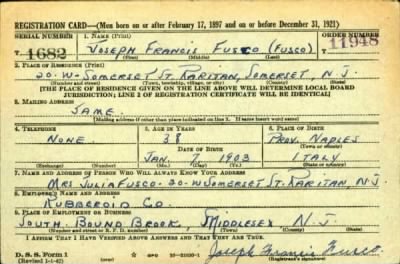 REGISTRATION CARD—(Men born on or after February 17, 1897 and on or before December 31, 1921)
SERIAL NUMBER 1. NAME (Print) ORDER NUMBER
T 1682 JOSEPH FRANCIS FUSCO (FUSCO) T 11948
(First) (Middle) (Last)
2. PLACE OF RESIDENCE (Print)
20-W-SOMERSET ST. RARITAN, SOMERSET, N. J.
(Number and street) (Town, township, village, or city) (County) (State)
[THE PLACE OF RESIDENCE GIVEN ON THE LINE ABOVE WILL DETERMINE LOCAL BOARD
JURISDICTION; LINE 2 OF REGISTRATION CERTIFICATE WILL BE IDENTICAL]
3. MAILING ADDRESS
SAME.
[Mailing address if other than place indicated on line 2. If same insert word same]
4. TELEPHONE 5. AGE IN YEARS 6. PLACE OF BIRTH
NONE 38 PROV. NAPLES
DATE OF BIRTH (Town or county)
JAN. 7 1903 ITALY
(Exchange) (Number) (Mo.) (Day) (Yr.) (State or country)
7. NAME AND ADDRESS OF PERSON WHO WILL ALWAYS KNOW YOUR ADDRESS
MRS JULIA FUSCO-20-W SOMERSET ST. RARITAN N.J
8. EMPLOYER'S NAME AND ADDRESS
RUBBEROID CO.
9. PLACE OF EMPLOYMENT OR BUSINESS
SOUTH BOUND BROOK, MIDDLESEX N. J.
(Number and street or R. F. D. number) (Town) (County) (State)
I AFFIRM THAT I HAVE VERIFIED ABOVE ANSWERS AND THAT THEY ARE TRUE.
D. S. S. Form 1 Joseph Francis Fusco
(Revised 1-1-42) (over) (Registrant's signature)